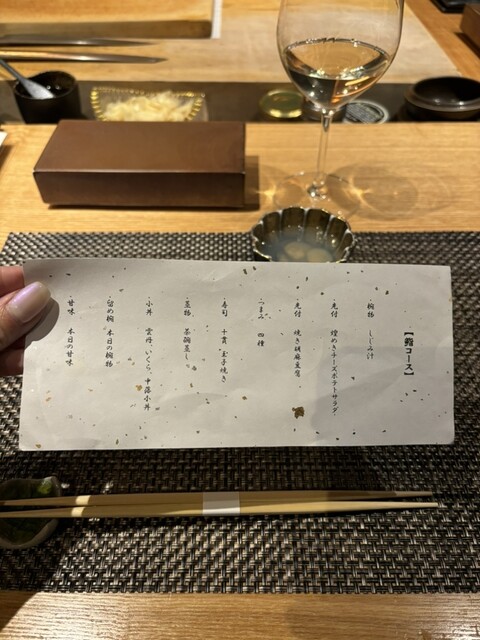 【鮨コース】
・椀物 しじみ汁
・先付 燻めきチーズポテトサラダ
・先付 焼き胡麻豆腐
・つまみ 四種
・寿司 十貫、玉子焼き
・蒸物 茶碗蒸し
・小丼 雲丹、いくら、中落小丼
・留め椀 本日の椀物
・甘味 本日の甘味